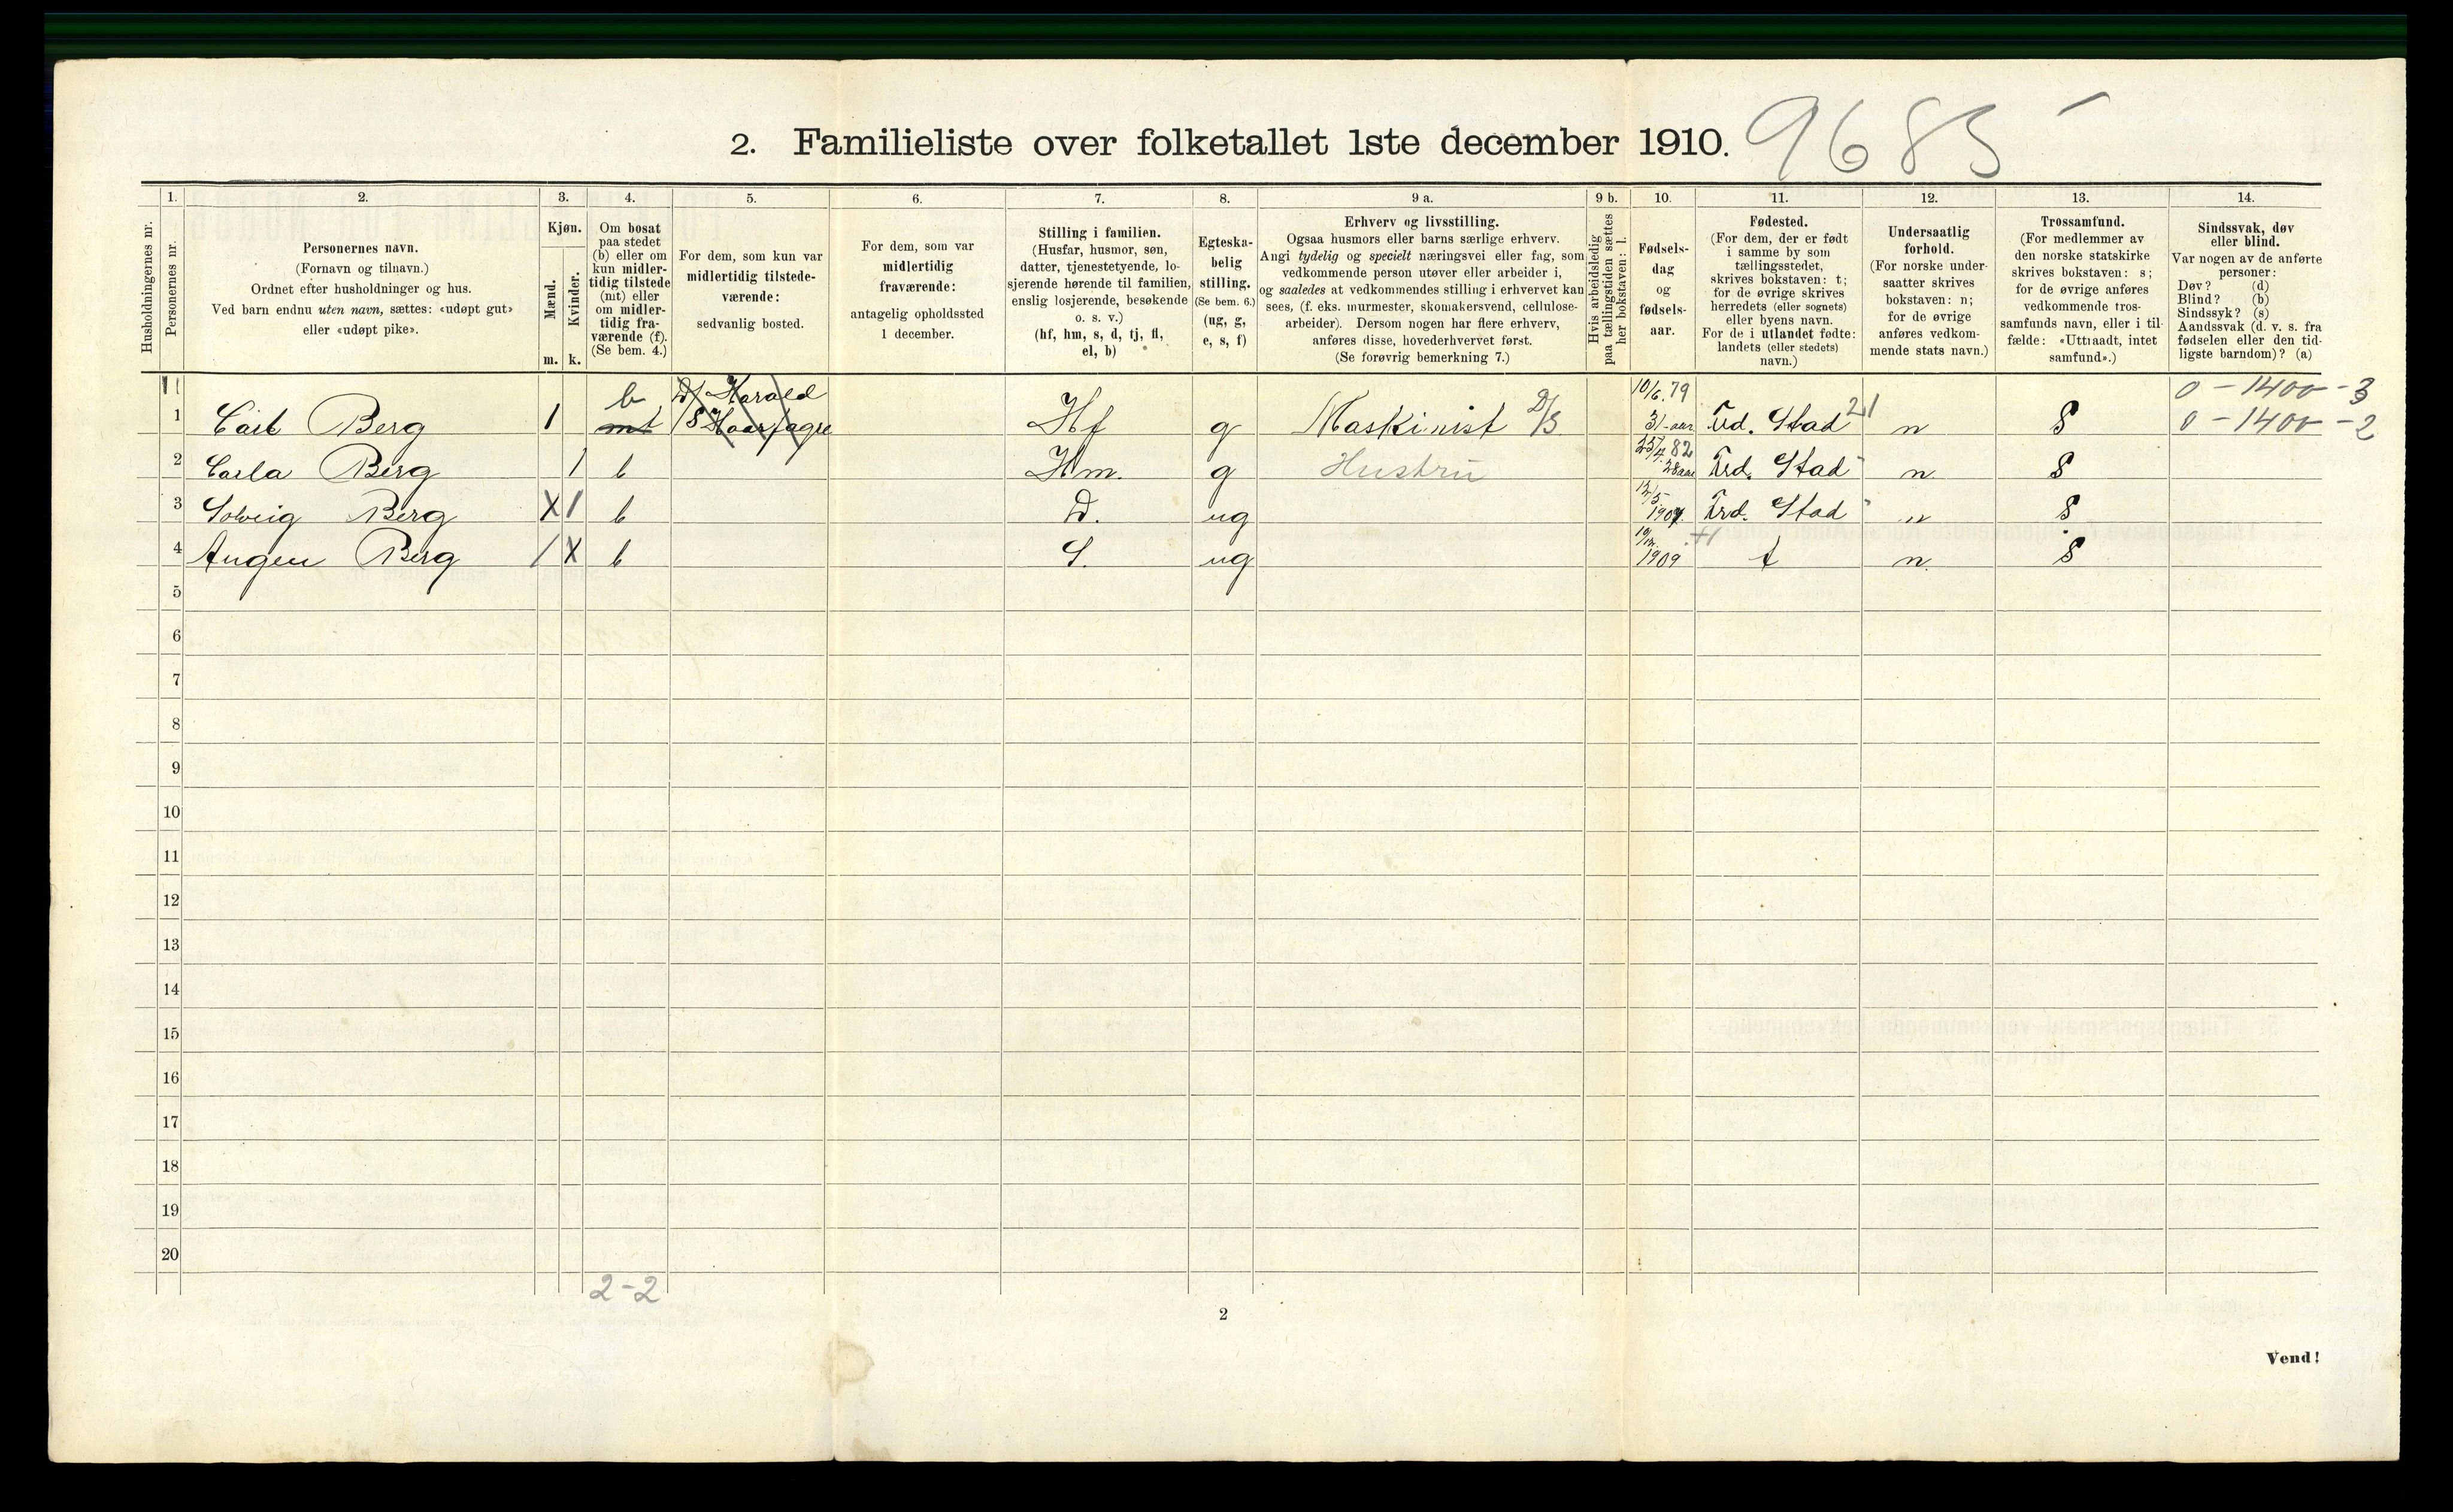 2. Familieliste over folketallet 1ste december 1910. 9685
Husholdningernes nr.
1. Personernes nr.
2. Personernes navn.
(Fornavn og tilnavn.)
Ordnet efter husholdninger og hus.
Ved barn endnu uten navn, sættes: «udøpt gut»
eller «udøpt pike».
3. Kjøn.
Mænd. m.
Kvinder. k.
4. Om bosat
paa stedet
(b) eller om
kun midler-
tidig tilstede
(mt) eller
om midler-
tidig fra-
værende (f).
(Se bem. 4.)
5. For dem, som kun var
midlertidig tilstede-
værende:
sedvanlig bosted.
6. For dem, som var
midlertidig
fraværende:
antagelig opholdssted
1 december.
7. Stilling i familien.
(Husfar, husmor, søn,
datter, tjenestetyende, lo-
sjerende hørende til familien,
enslig losjerende, besøkende
o. s. v.)
(hf, hm, s, d, tj, fl,
el, b)
8. Egteska-
belig
stilling.
(Se bem. 6.)
(ug, g,
e, s, f)
9 a. Erhverv og livsstilling.
Ogsaa husmors eller barns særlige erhverv.
Angi tydelig og specielt næringsvei eller fag, som
vedkommende person utøver eller arbeider i,
og saaledes at vedkommendes stilling i erhvervet kan
sees, (f. eks. murmester, skomakersvend, cellulose-
arbeider). Dersom nogen har flere erhverv,
anføres disse, hovederhvervet først.
(Se forøvrig bemerkning 7.)
9 b. Hvis arbeidsledig
paa tællingstiden sættes
her bokstaven: l.
10. Fødsels-
dag
og
fødsels-
aar.
11. Fødested.
(For dem, der er født
i samme by som
tællingsstedet,
skrives bokstaven: t;
for de øvrige skrives
herredets (eller sognets)
eller byens navn.
For de i utlandet fødte:
landets (eller stedets)
navn.)
12. Undersaatlig
forhold.
(For norske under-
saatter skrives
bokstaven: n;
for de øvrige
anføres vedkom-
mende stats navn.)
13. Trossamfund.
(For medlemmer av
den norske statskirke
skrives bokstaven: s;
for de øvrige anføres
vedkommende tros-
samfunds navn, eller i til-
fælde: «Uttraadt, intet
samfund».)
14. Sindssvak, døv
eller blind.
Var nogen av de anførte
personer:
Døv? (d)
Blind? (b)
Sindssyk? (s)
Aandssvak (d. v. s. fra
fødselen eller den tid-
ligste barndom)? (a)
b D/ Harald 10/6.79 0 - 1400 - 3
1 Carl Berg 1 mt S Haarfagre Hf g Maskinist D/S 31 aar Trd. Stad 21 n S 0 - 1400 - 2
2 Carla Berg 1 b Hm. g Hustru 82 28 aar Trd. Stad n. S
3 Solveig Berg X 1 b D. ug 12/5 1907. Trd. Stad n S
4 Augen Berg 1 X b S. ug 1909 t n. S
5
6
7
8
9
10
11
12
13
14
15
16
17
18
19
20
2-2
2
Vend!